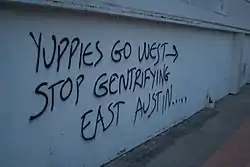 YUPPIES GO WEST→
STOP GENTRIFYING
EAST AUSTIN.....